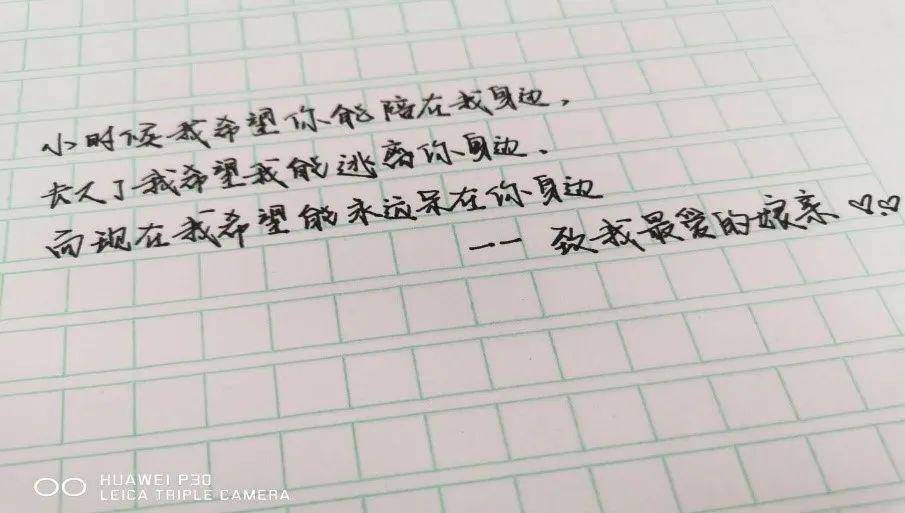 小时候我希望你能陪在我身边，
长大了我希望我能逃离你身边．
而现在我希望能永远呆在你身边
—— 致我最爱的娘亲 ♡♡
HUAWEI P30
LEICA TRIPLE CAMERA